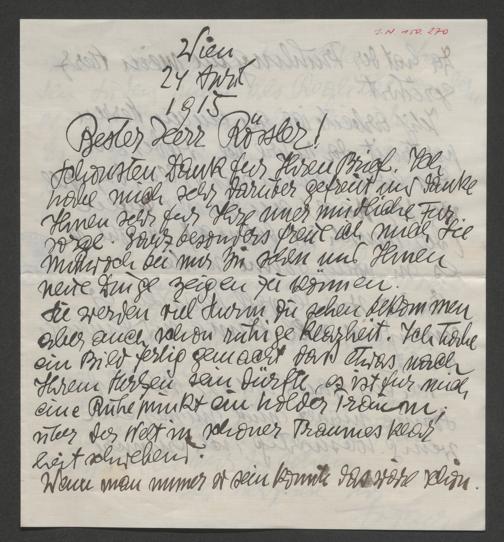 I.N. 159.270
Wien
24 April
1915
Bester Herr Rössler!
schönsten Dank für Ihren Brief. Ich
habe mich sehr darüber gefreut und danke
Ihnen sehr für Ihre unermüdliche Für-
sorge. Ganz besonders freue ich mich Sie
Mittwoch bei mir zu sehen und Ihnen
neue Dinge zeigen zu können.
Sie werden viel Sturm zu sehen bekommen
aber auch schon ruhige Klarheit. Ich habe
ein Bild fertig gemacht das etwas nach
Ihrem Herzen sein dürfte, es ist für mich
eine Ruhepunkt ein holder Traum,
über der Welt in schöner Traumesklar
heit schwebend.
Wenn man immer so sein könnte das wäre schön.